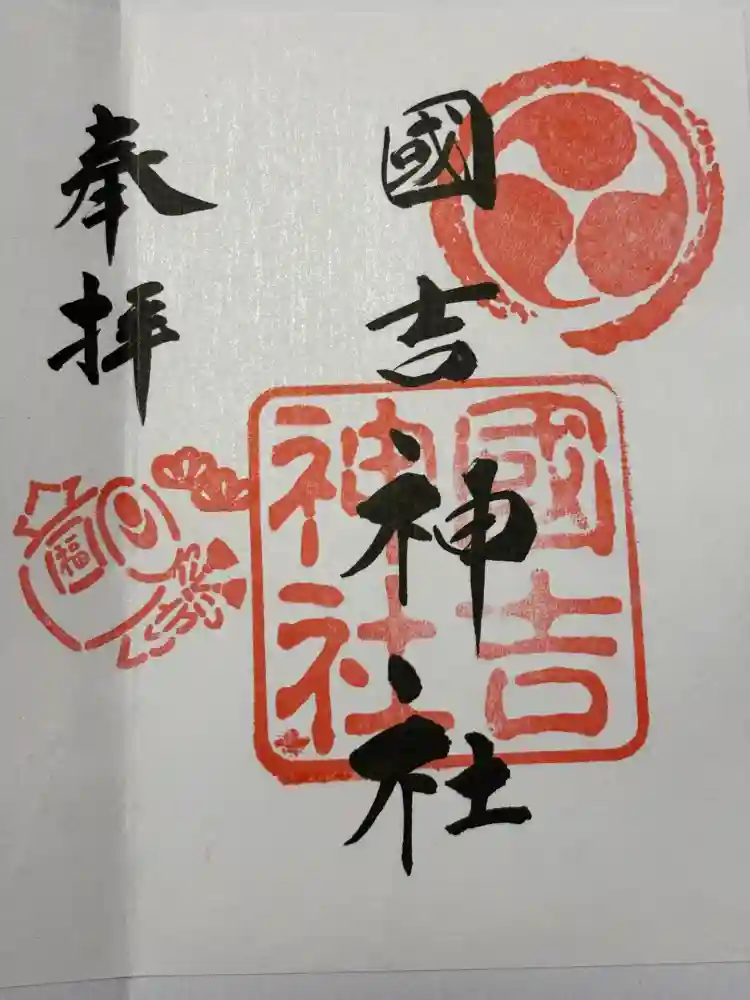 國吉神社
國吉神社
奉拝
福